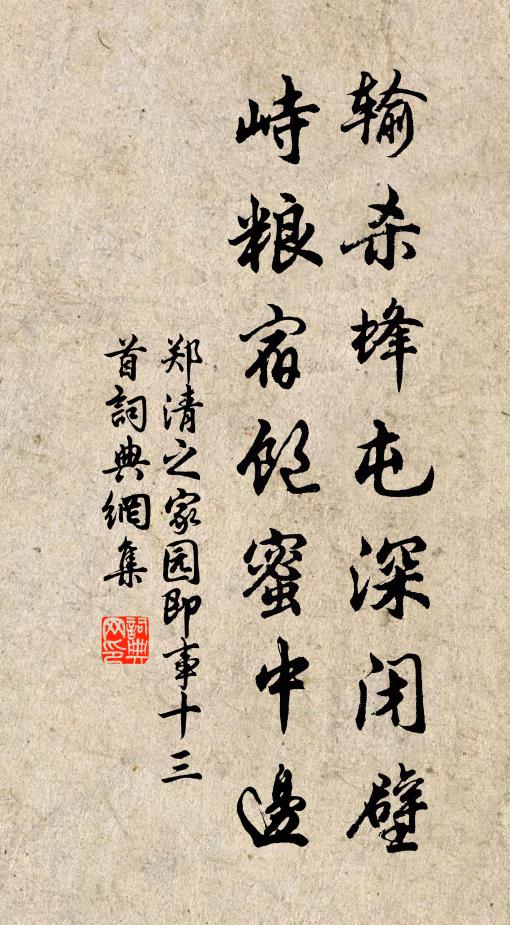 输杀蜂屯深闭壁
峙粮宿饱蜜中边
郑清之家园即事十三
首詞典網集
詞典
网印